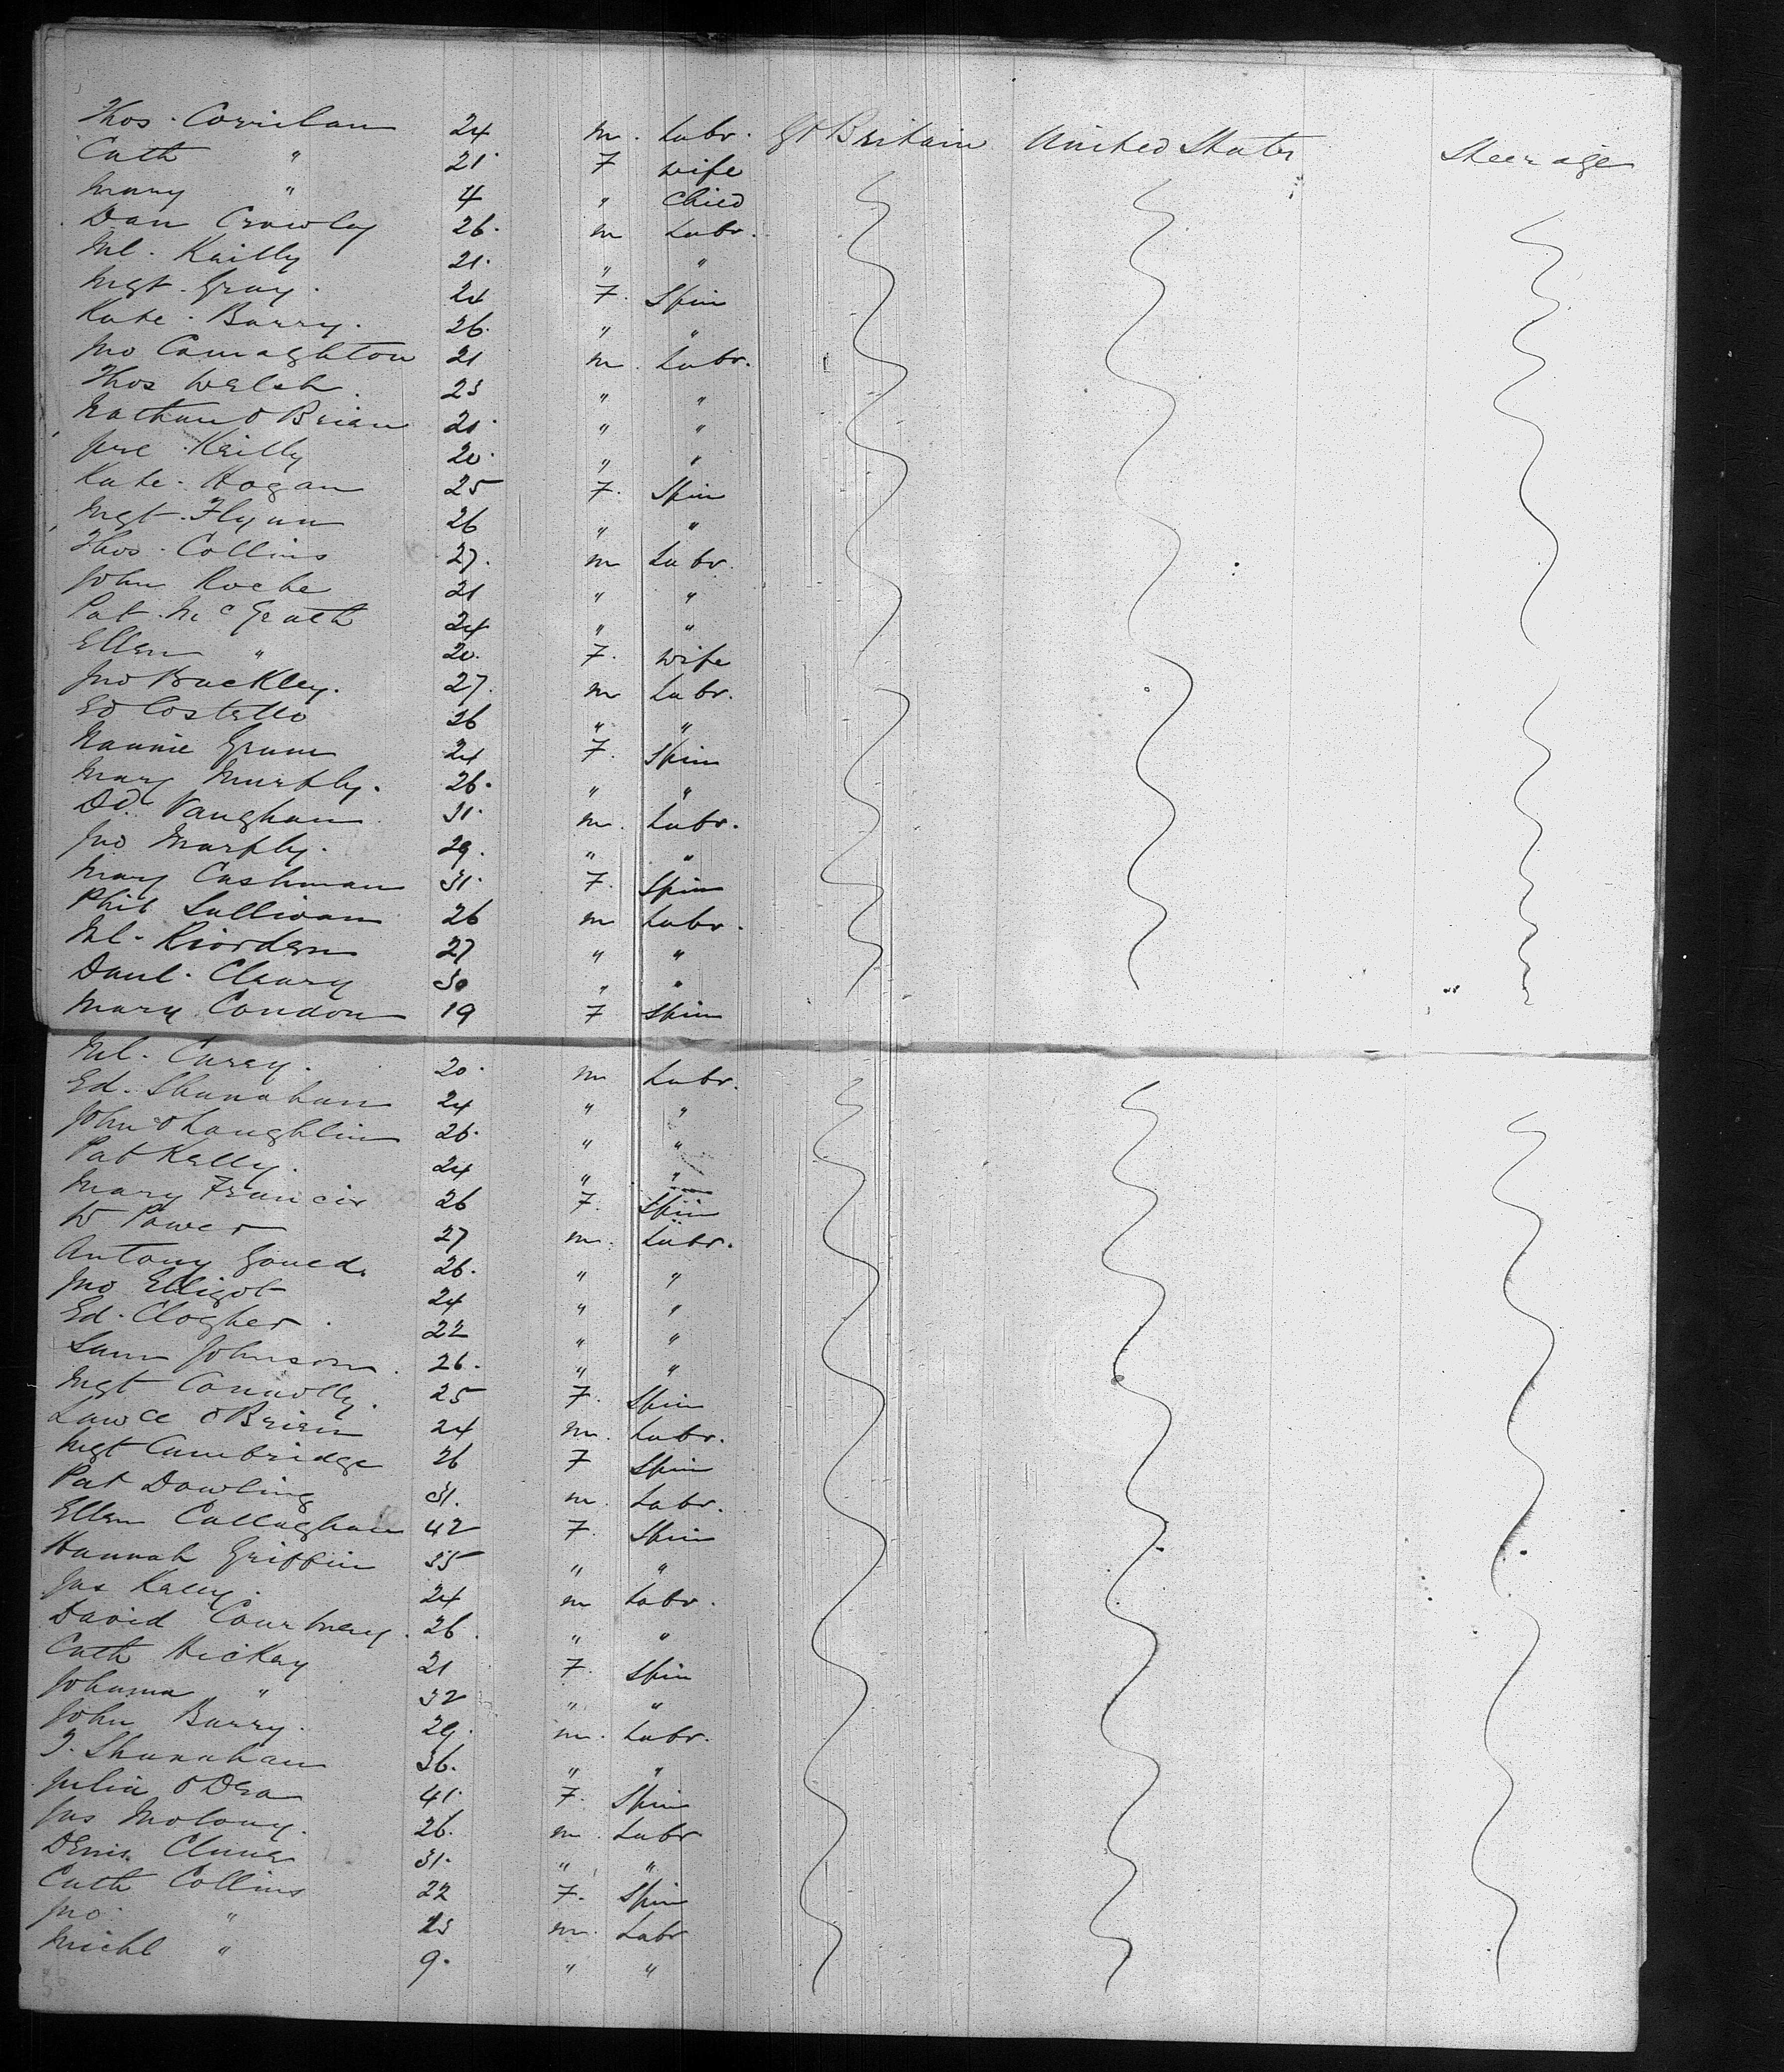 Thos. Corrilan 24 m. Labr. Gt Britain United States Steerage
Cath " 21 F wife
Mary " 4 " Child
Dan Crowley 26. m Labr.
Ml. Keilly 21. " "
Mgt. Gray. 24 F. Spin
Kate. Barry. 26. " "
Jno Connaghton 21 m. Labr.
Thos Welsh. 23 " "
Nathan O Brien 21. " "
Jere Keilly 20. " "
Kate. Hogan 25 F. Spin
Mgt. Flynn 26 " "
Thos. Collins 27. m Labr.
John Roche 21 " "
Pat. McGrath 24 " "
Ellen " 20. F. wife
Jno Buckley. 27. m Labr.
Ed Costello 26 " "
Nannie 24 F. Spin
Mary Murphy. 26. " "
Dd. Vaughan 31. m. Labr.
Jno Murphy. 29. " "
Mary Cashman 31. F. Spin
Phil Sullivan 26 m Labr.
Ml. Riorden 27 " "
Danl. Cleary 30 " "
Mary Condon 19 F Spin
Ml. Carey. 20. m Labr.
Ed. Shanahan 24 " "
John O Laughlin 26. " "
Pat Kelly. 24 " "
Mary Francis 26 F. Spin
W Power 27 m. Labr.
Antony Gould. 26. " "
Jno Elligot 24 " "
Ed. Clogher. 22 " "
Sam Johnson. 26. " "
Mgt Connolly. 25 F. Spin
Lawce O Brien 24 m. Labr.
Mgt Cambridge 26 F Spin
Pat Dowling 31. m. Labr.
Ellen Callaghan 42 F. Spin
Hannah Griffin 35 " "
Jas 24 m Labr.
David Courtney. 26. " "
Cath Hickey 21 F. Spin
Johanna " 32 " "
John Barry. 29. m. Labr.
T. Shanahan 36. " "
Julia O Dea 41. F. Spin
Jas Molony. 26. m. Labr
Denis Clune 31. " "
Cath Collins 22 F. Spin
Jno. " 23 m. Labr
Michl " 9. " "